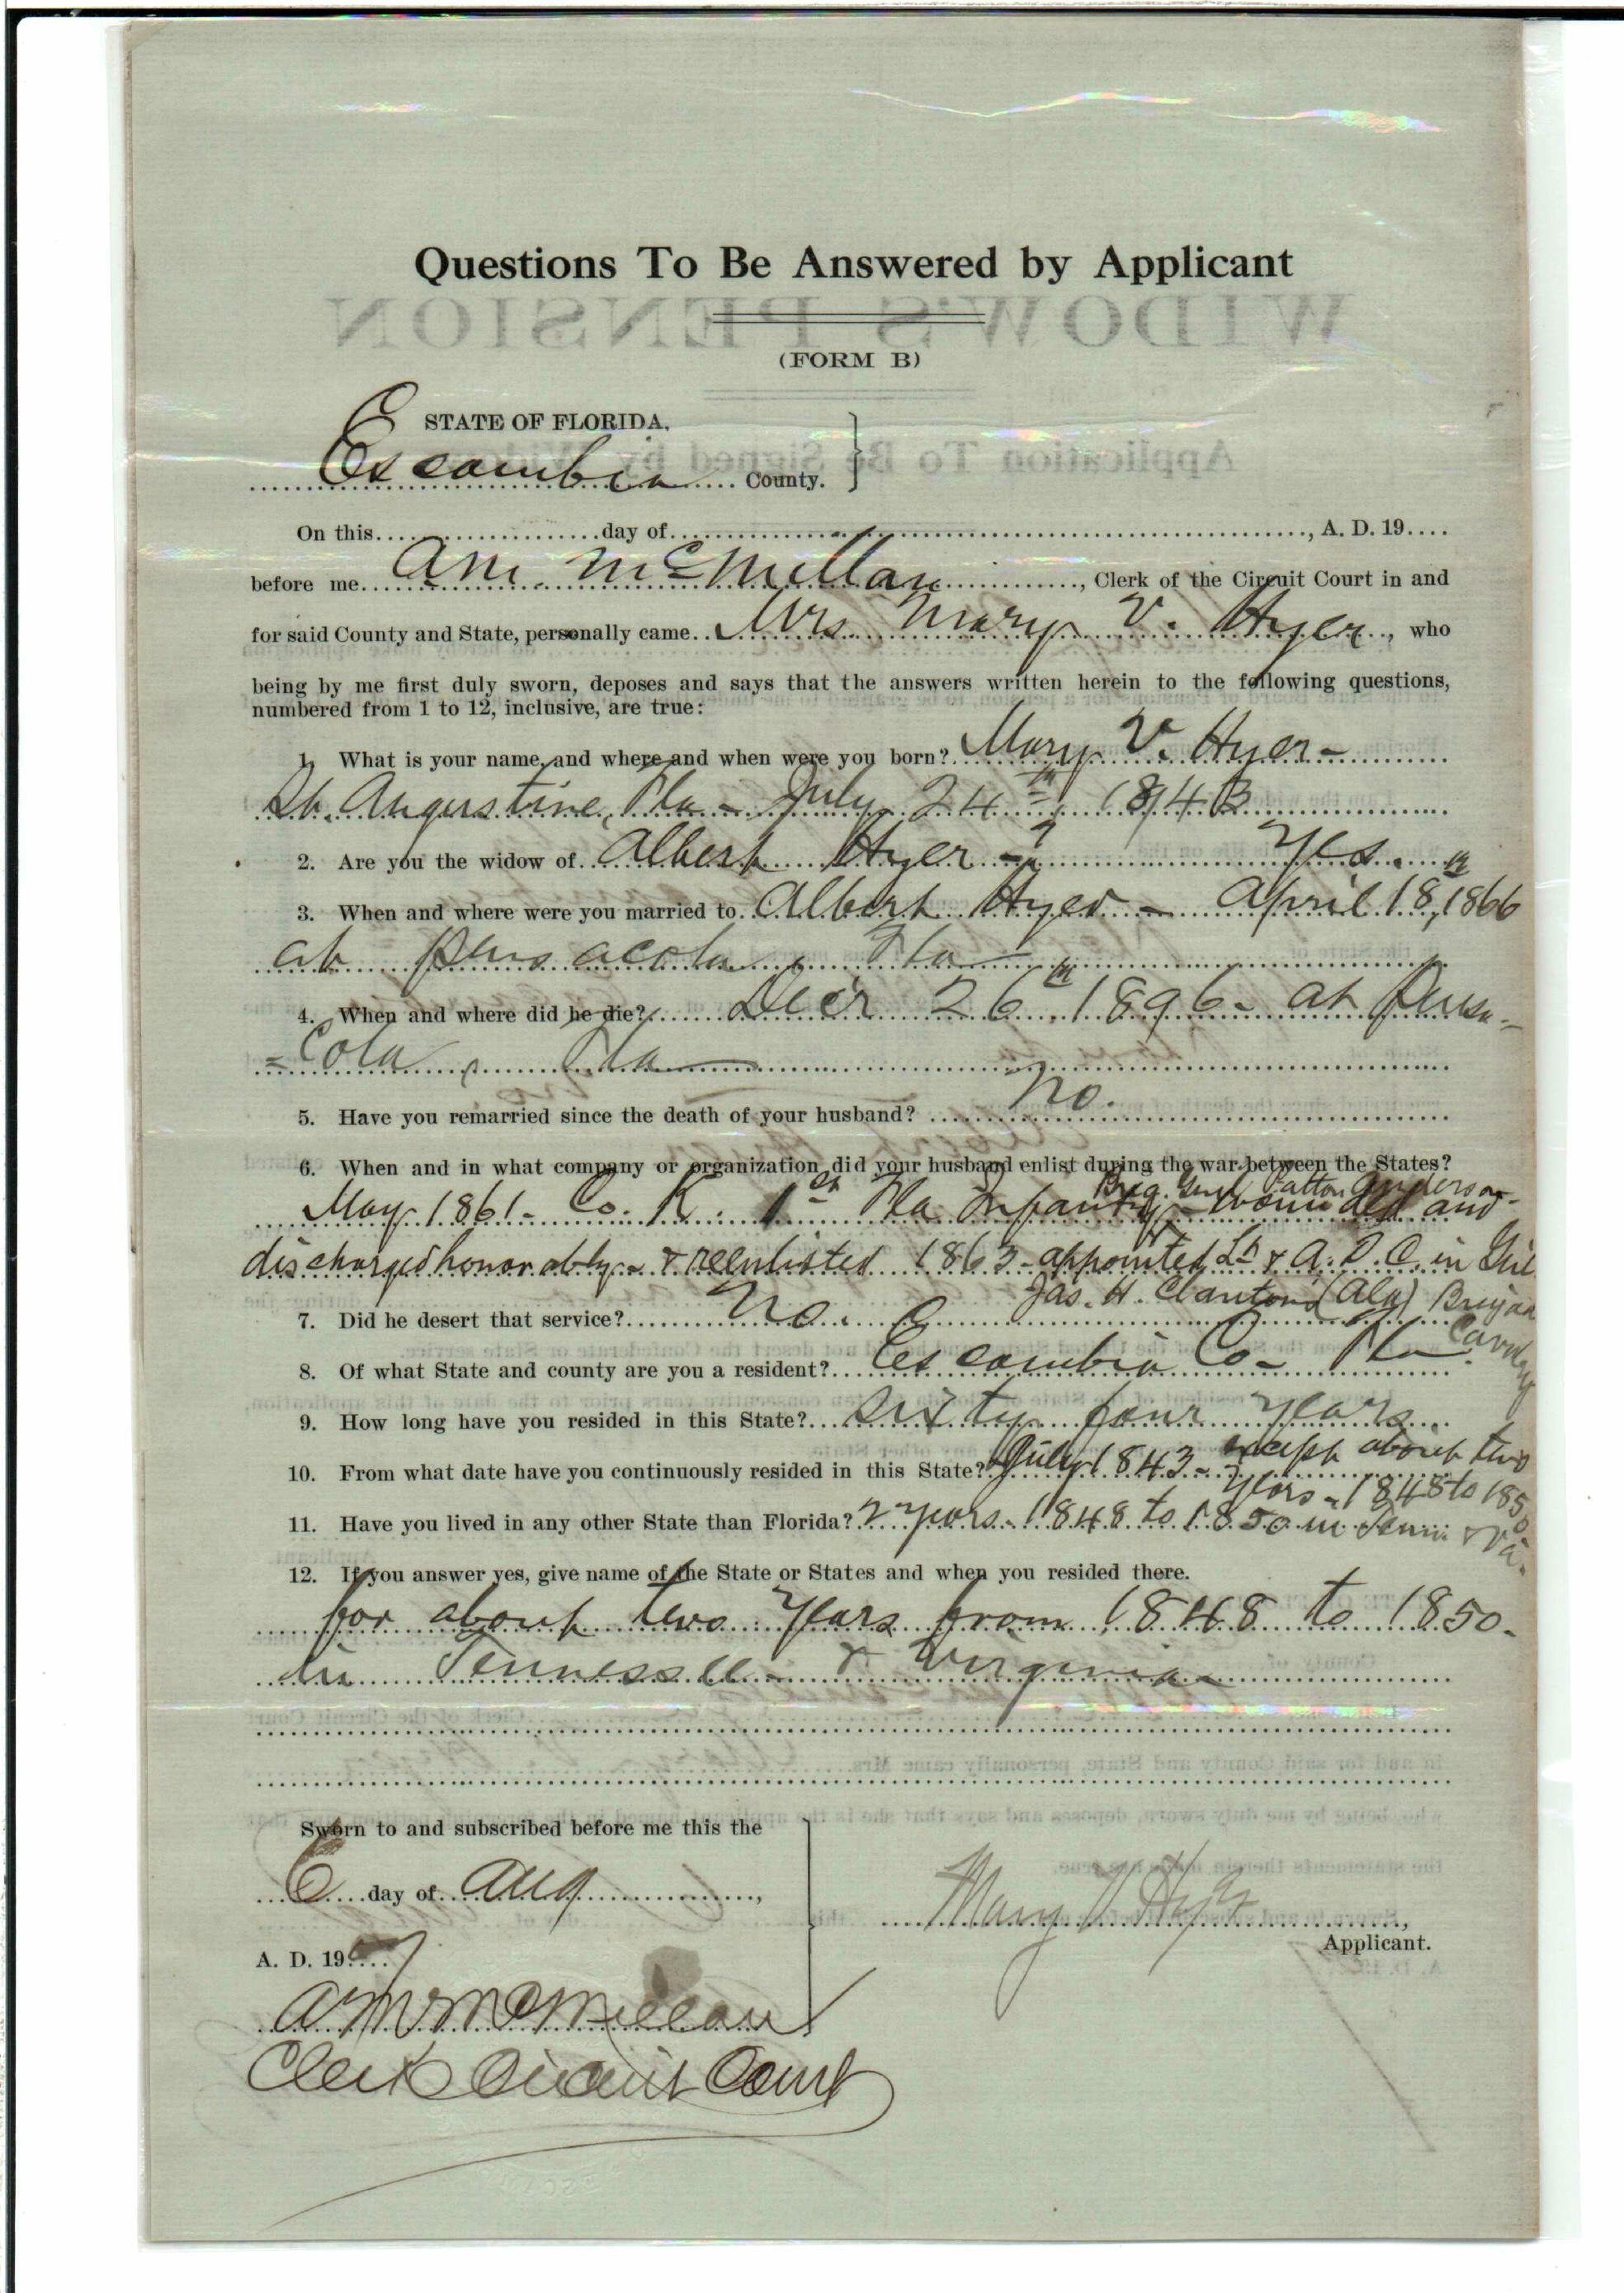 Questions To Be Answered by Applicant
WIDOW'S PENSION
(FORM B)
STATE OF FLORIDA,
Escambia County.
On this day of , A. D. 19
before me A M. McMillan , Clerk of the Circuit Court in and
for said County and State, personally came Mrs. Mary V. Hyer , who
being by me first duly sworn, deposes and says that the answers written herein to the following questions,
numbered from 1 to 12, inclusive, are true:
1. What is your name, and where and when were you born? Mary V. Hyer -
St. Augustine, Fla - July 24th 1843
2. Are you the widow of Albert Hyer - ? Yes.
3. When and where were you married to Albert Hyer - April 18th, 1866
at Pensacola, Fla
4. When and where did he die? Decr 26th 1896 - at Pensa-
=cola, Fla
5. Have you remarried since the death of your husband? No.
6. When and in what company or organization did your husband enlist during the war between the States?
Brig. Genl Patton Anderson -
May 1861 - Co. K. 1st Fla Infantry - wounded and
discharged honorably - & reenlisted 1863 - appointed Lt & A. D. C. in Gnl
Jas. H. Clanton's (Ala) Brigade
Cavalry
7. Did he desert that service? No.
8. Of what State and county are you a resident? Escambia Co - Fla
9. How long have you resided in this State? Sixty four years
10. From what date have you continuously resided in this State? July 1843 - except about two
years - 1848 to 1850
11. Have you lived in any other State than Florida? 2 years - 1848 to 1850 in Tenn & Va.
12. If you answer yes, give name of the State or States and when you resided there.
for about two years from 1848 to 1850 -
in Tennessee - & Virginia
Sworn to and subscribed before me this the
6 day of Aug ,
A. D. 1907
Mary V Hyer ,
Applicant.
A M McMillan
Clerk Circuit Court